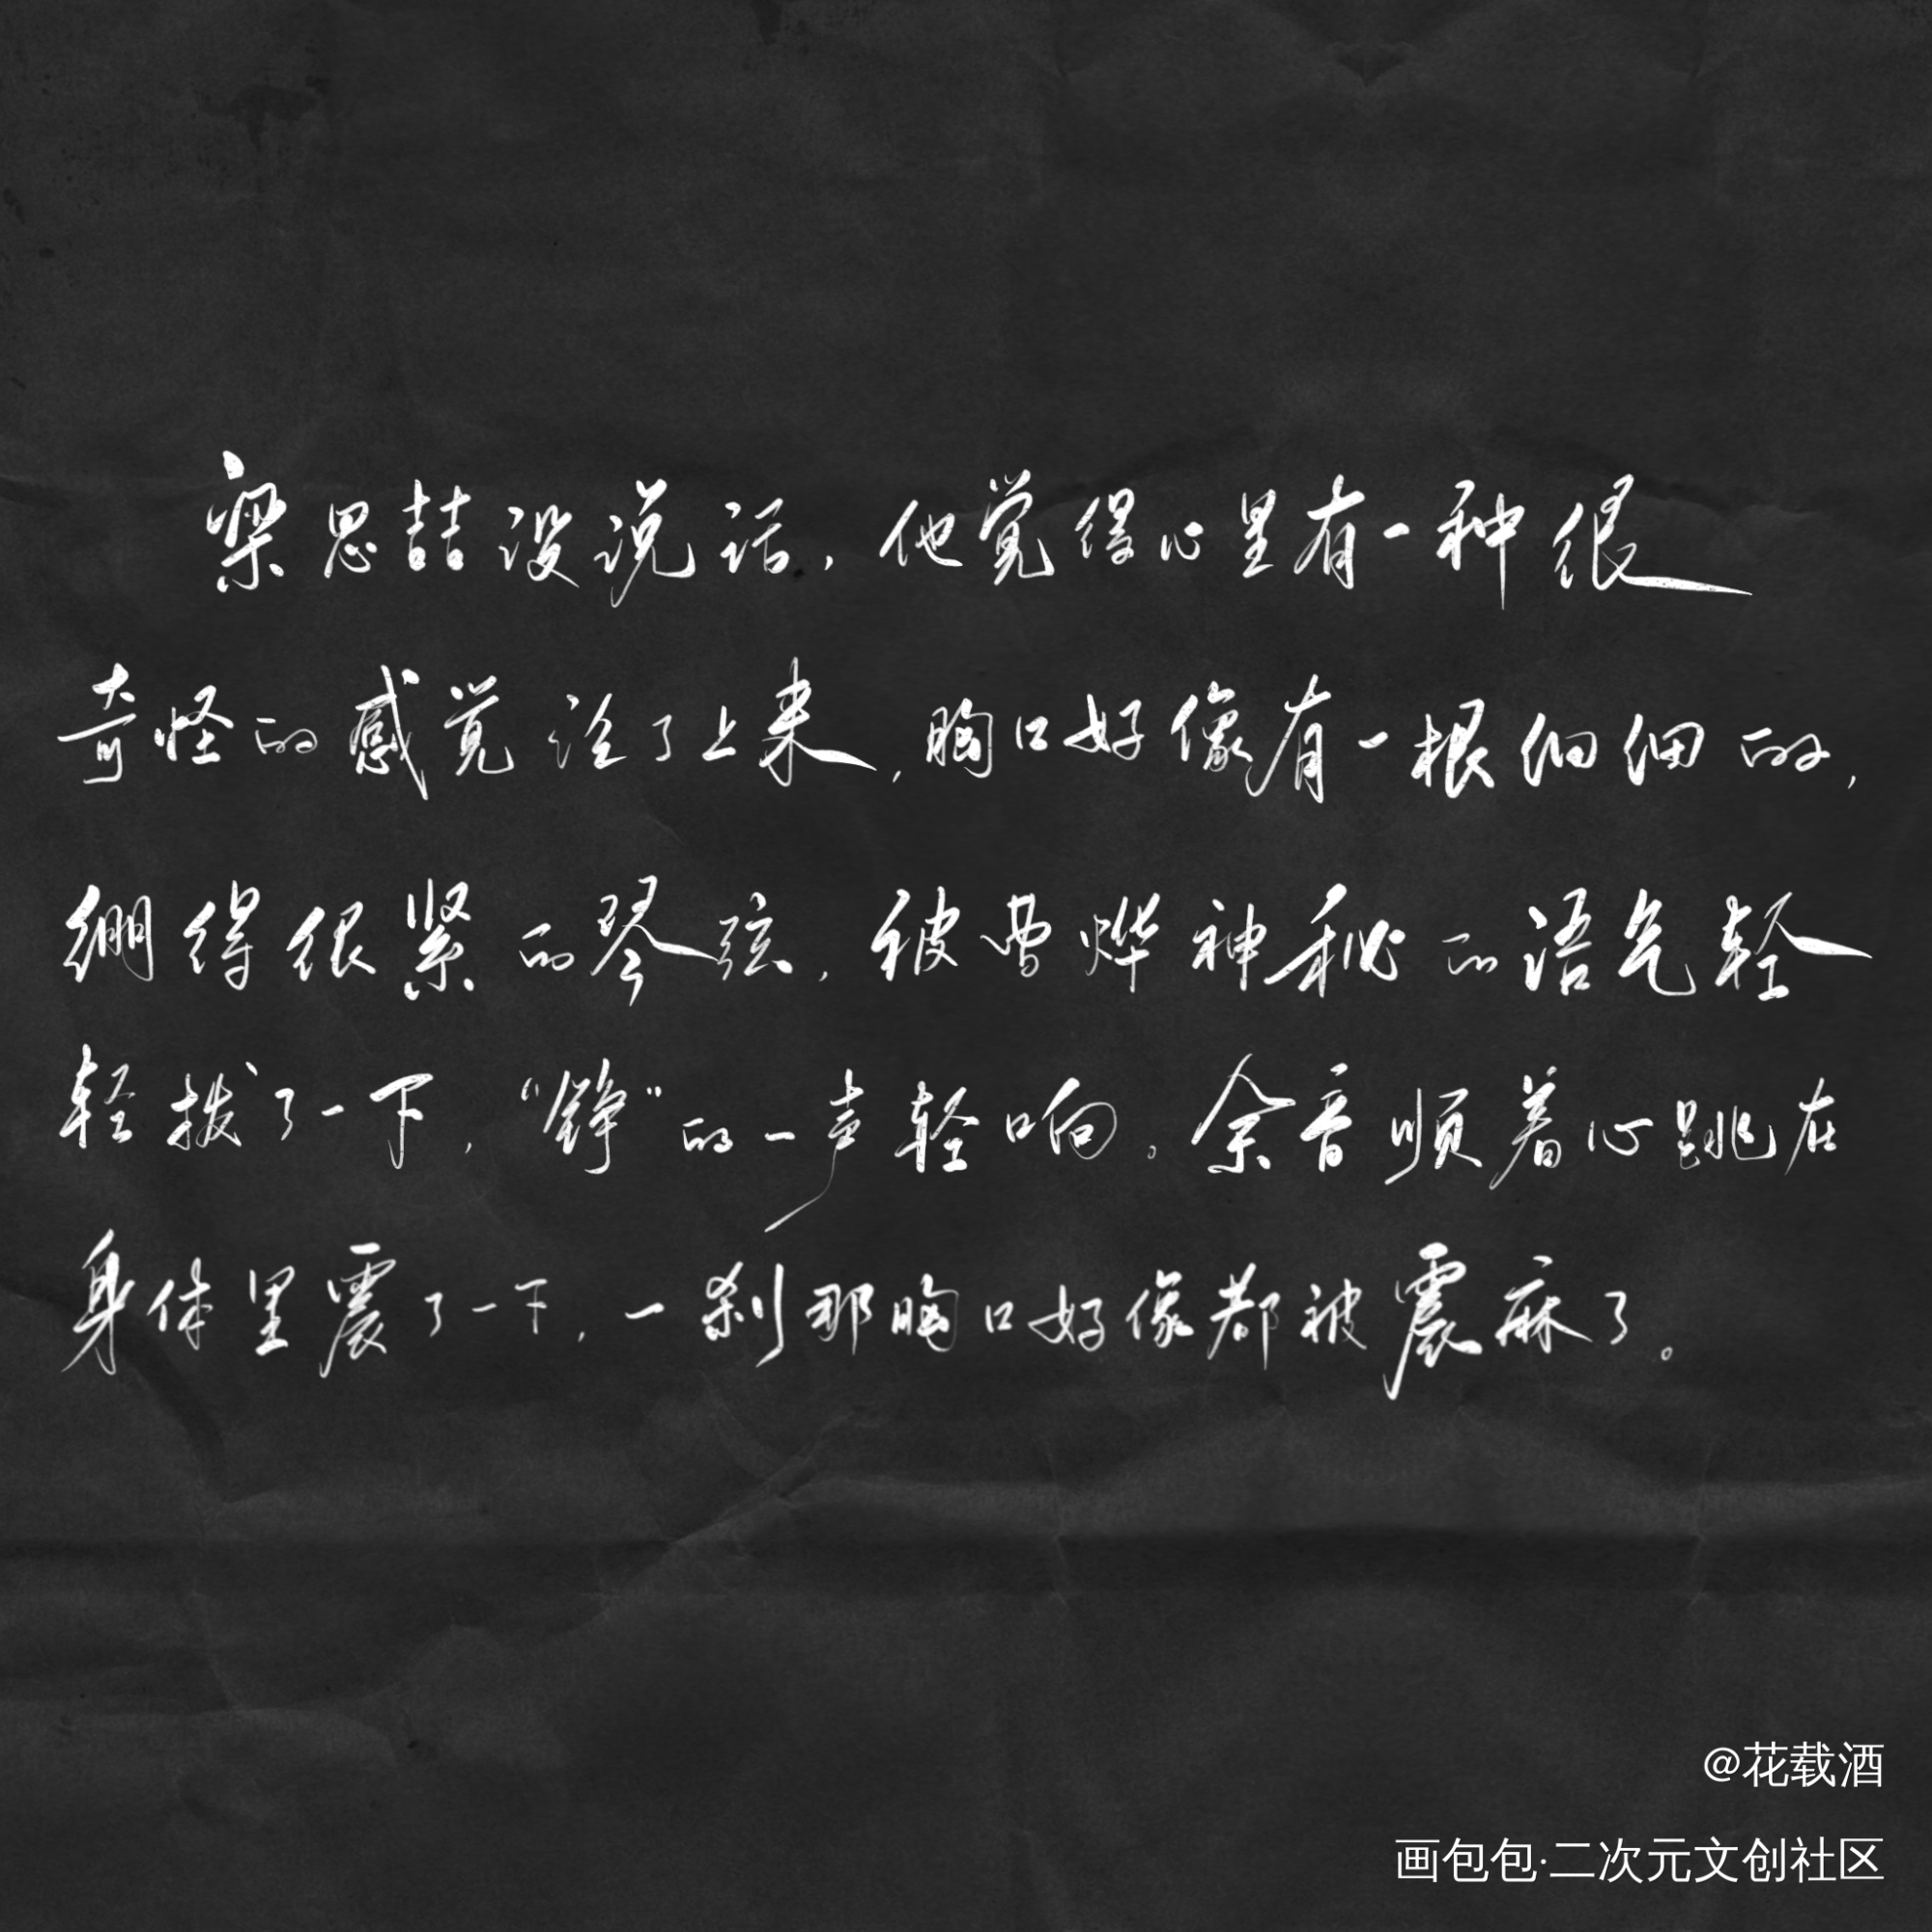 梁思喆没说话，他觉得心里有一种很
奇怪的感觉泛了上来，胸口好像有一根细细的，
绷得很紧的琴弦，被曹烨神秘的语气轻
轻拨了一下，“铮”的一声轻响。余音顺着心跳在
身体里震了一下，一刹那胸口好像都被震麻了。
@花载酒
画包包·二次元文创社区